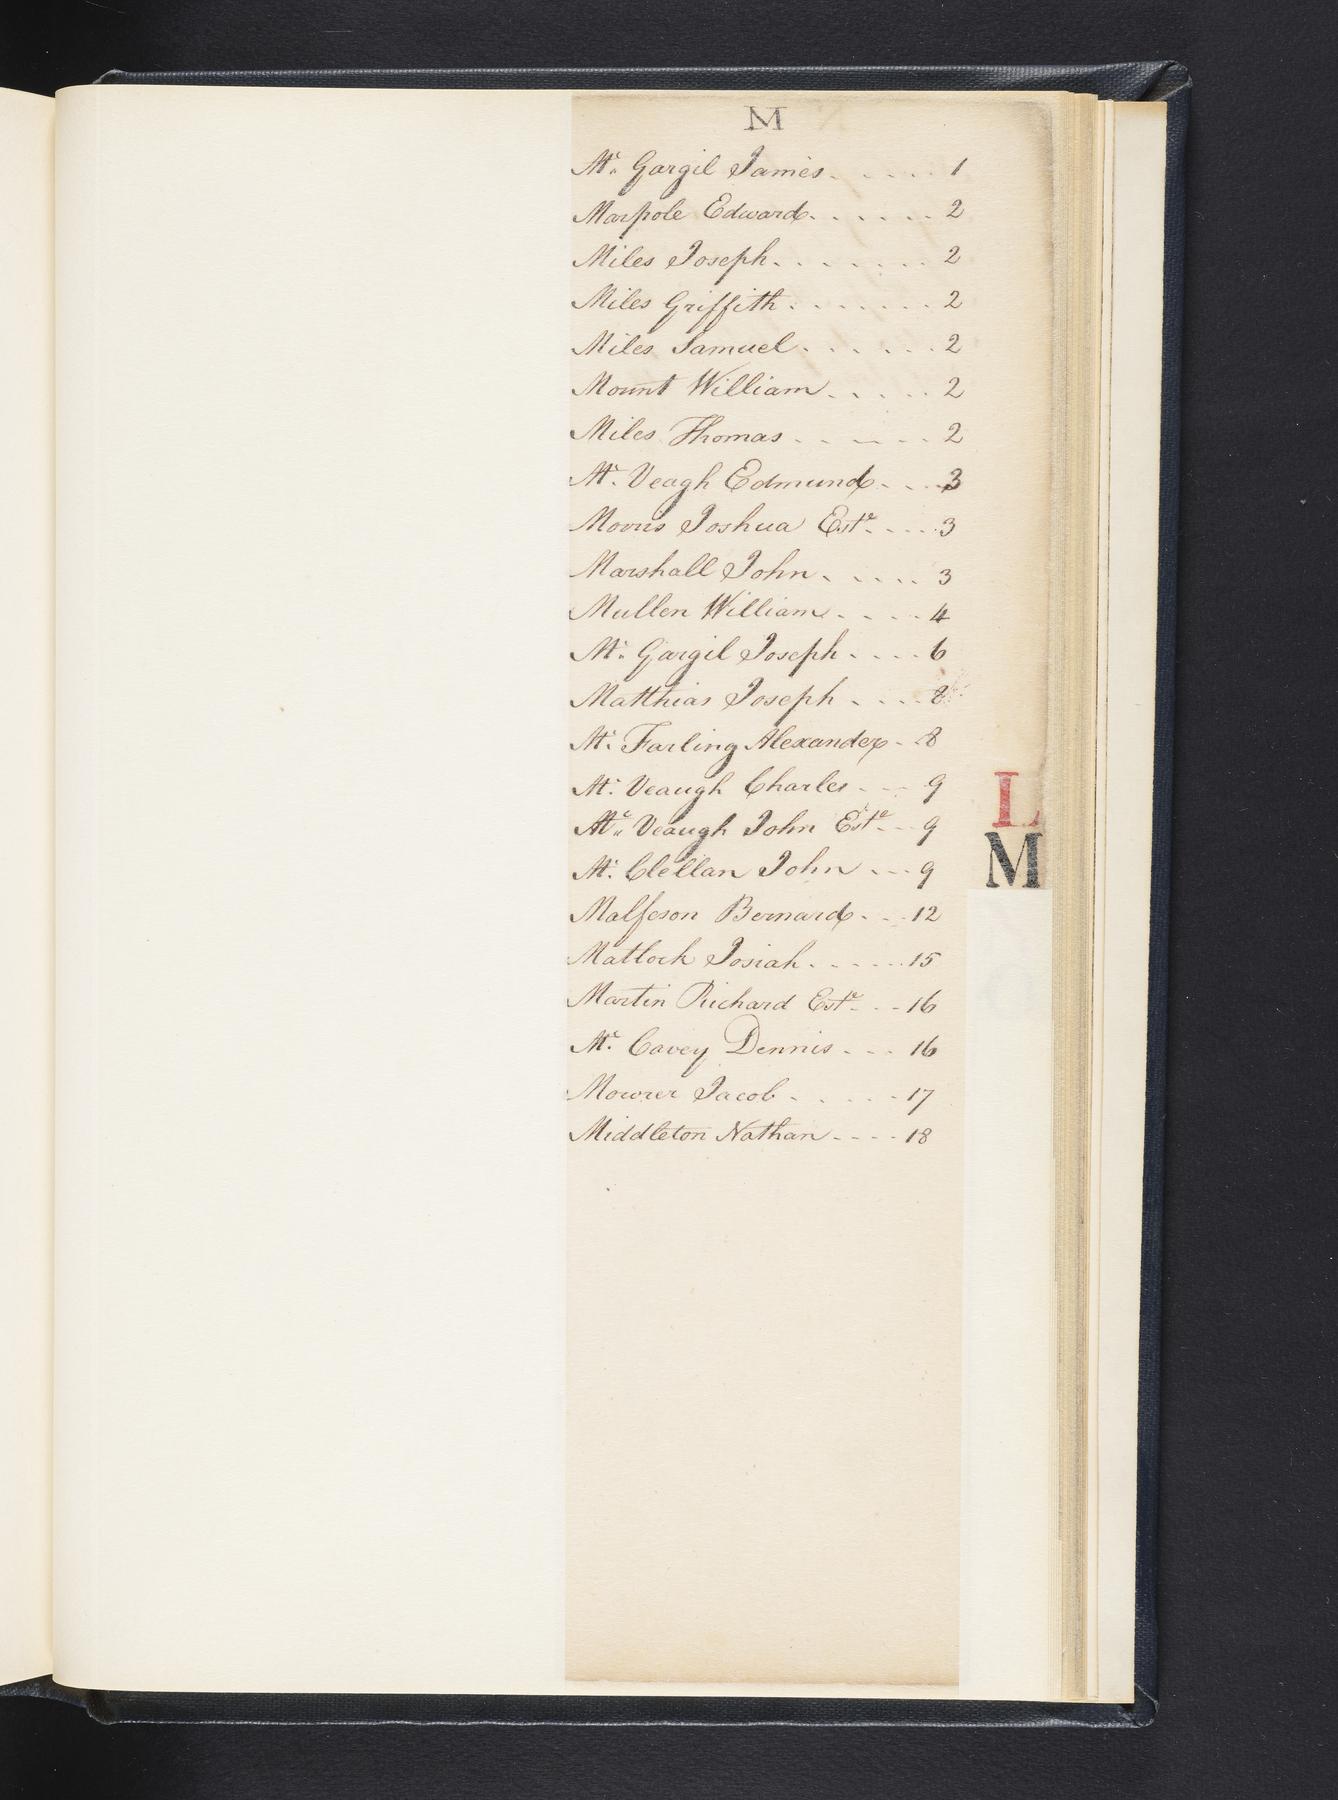 M
Mc. Gargil James. . . . . 1
Marpole Edward. . . . . . 2
Miles Joseph. . . . . . . 2
Miles Griffith. . . . . . . 2
Miles Samuel. . . . . . 2
Mount William. . . . . 2
Miles Thomas. . . . . . 2
Mc. Veagh Edmund. . . . 3
Morris Joshua Este. . . . 3
Marshall John. . . . . 3
Mullen William. . . . . 4
Mc. Gargil Joseph. . . . 6
Matthias Joseph. . . . 8
Mc. Farling Alexander - . 8
Mc. Veaugh Charles - - - 9
Mc. Veaugh John Este. - - 9
Mc. Clellan John - - - 9
L
M
Malfeson Bernard. - - 12
Matlock Josiah. - - - - 15
Martin Richard Este. - - 16
Mc. Cavey Dennis. - - - 16
Mowrer Jacob. - - - - 17
Middleton Nathan. - - - - 18